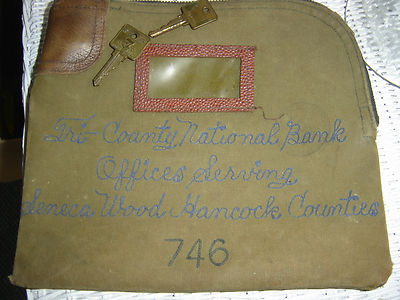 Tri-County National Bank
Offices Serving
Seneca Wood Hancock Counties
746